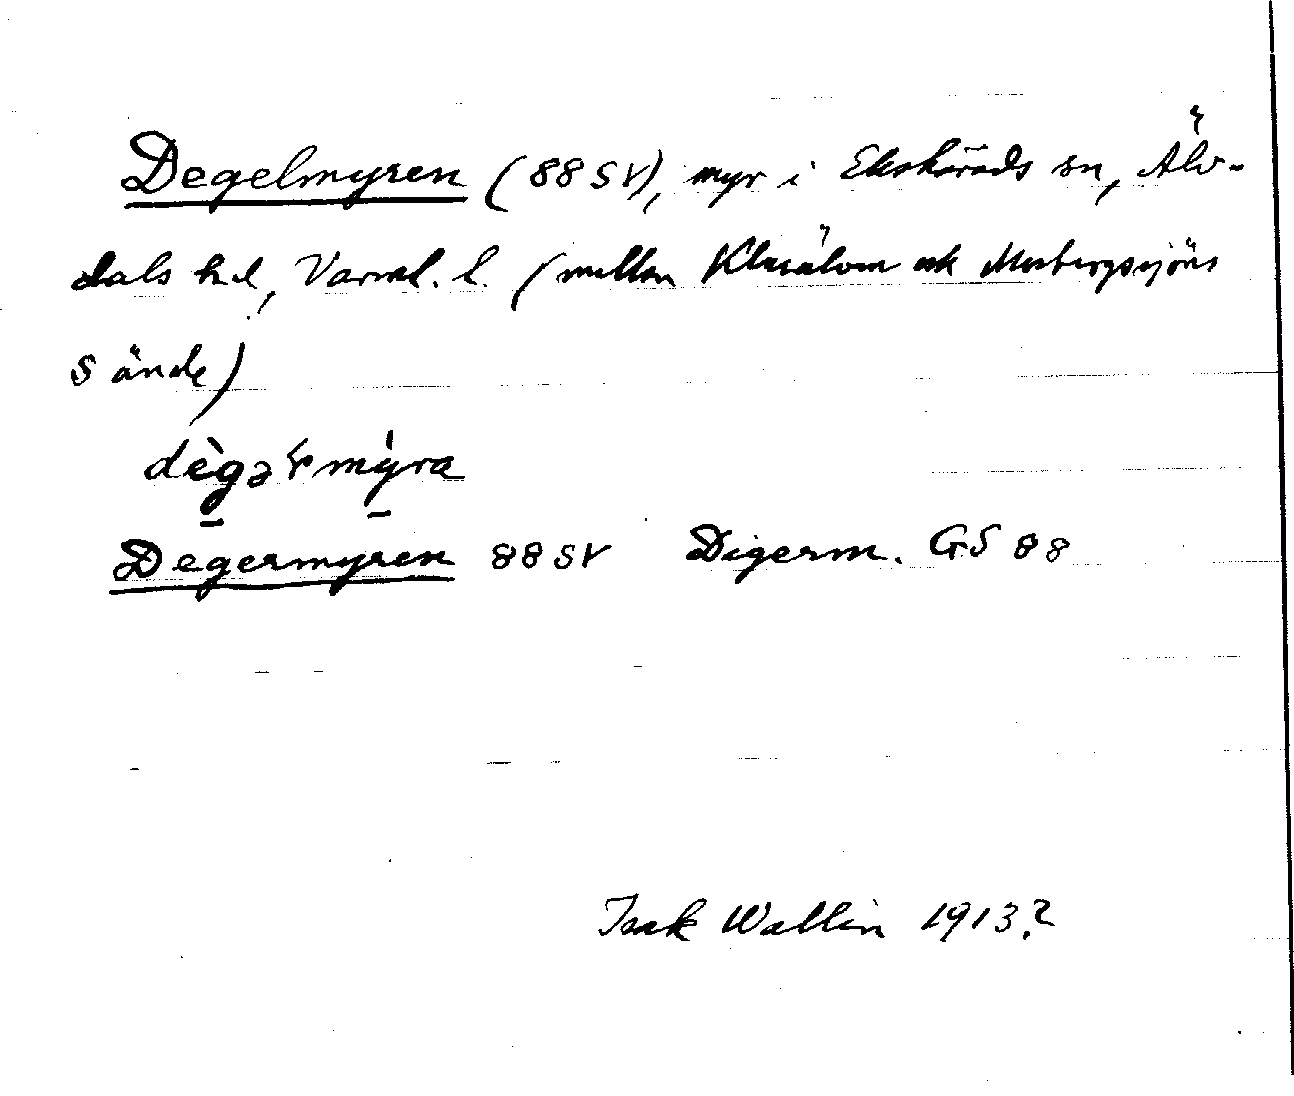 Degelmyren (88 SV), myr i Ekshärads sn, Älv-
dals hd, Värml. l. (mellan Klarälven och Mosbergssjöns
S ände)
dègəɽmýra
Degermyren 88 SV Digerm. GS 88
Isak Wallin 1913?